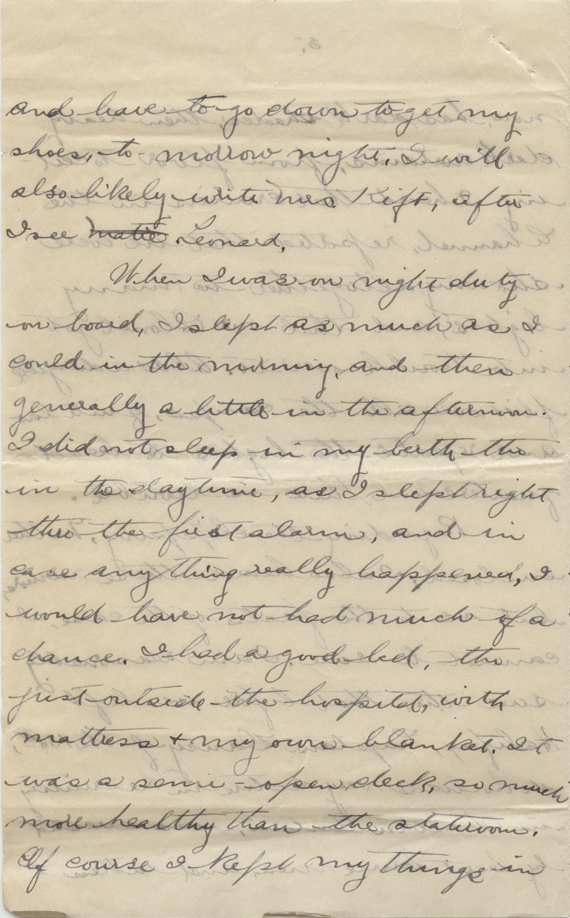 and have to go down to get my
shoes, to-morrow night. I will
also likely write Mrs Kift, after
I see Matie Leonard,
When I was on night duty
on board, I slept as much as I
could in the morning, and then
generally a little in the afternoon.
I did not sleep in my berth, tho
in the daytime, as I slept right
thro the first alarm, and in
case anything really happened, I
would have not had much of a
chance. I had a good bed, tho
just outside the hospital, with
mattress + my own blanket. It
was a semi-open deck, so much
more healthy than the stateroom.
Of course I kept my things in